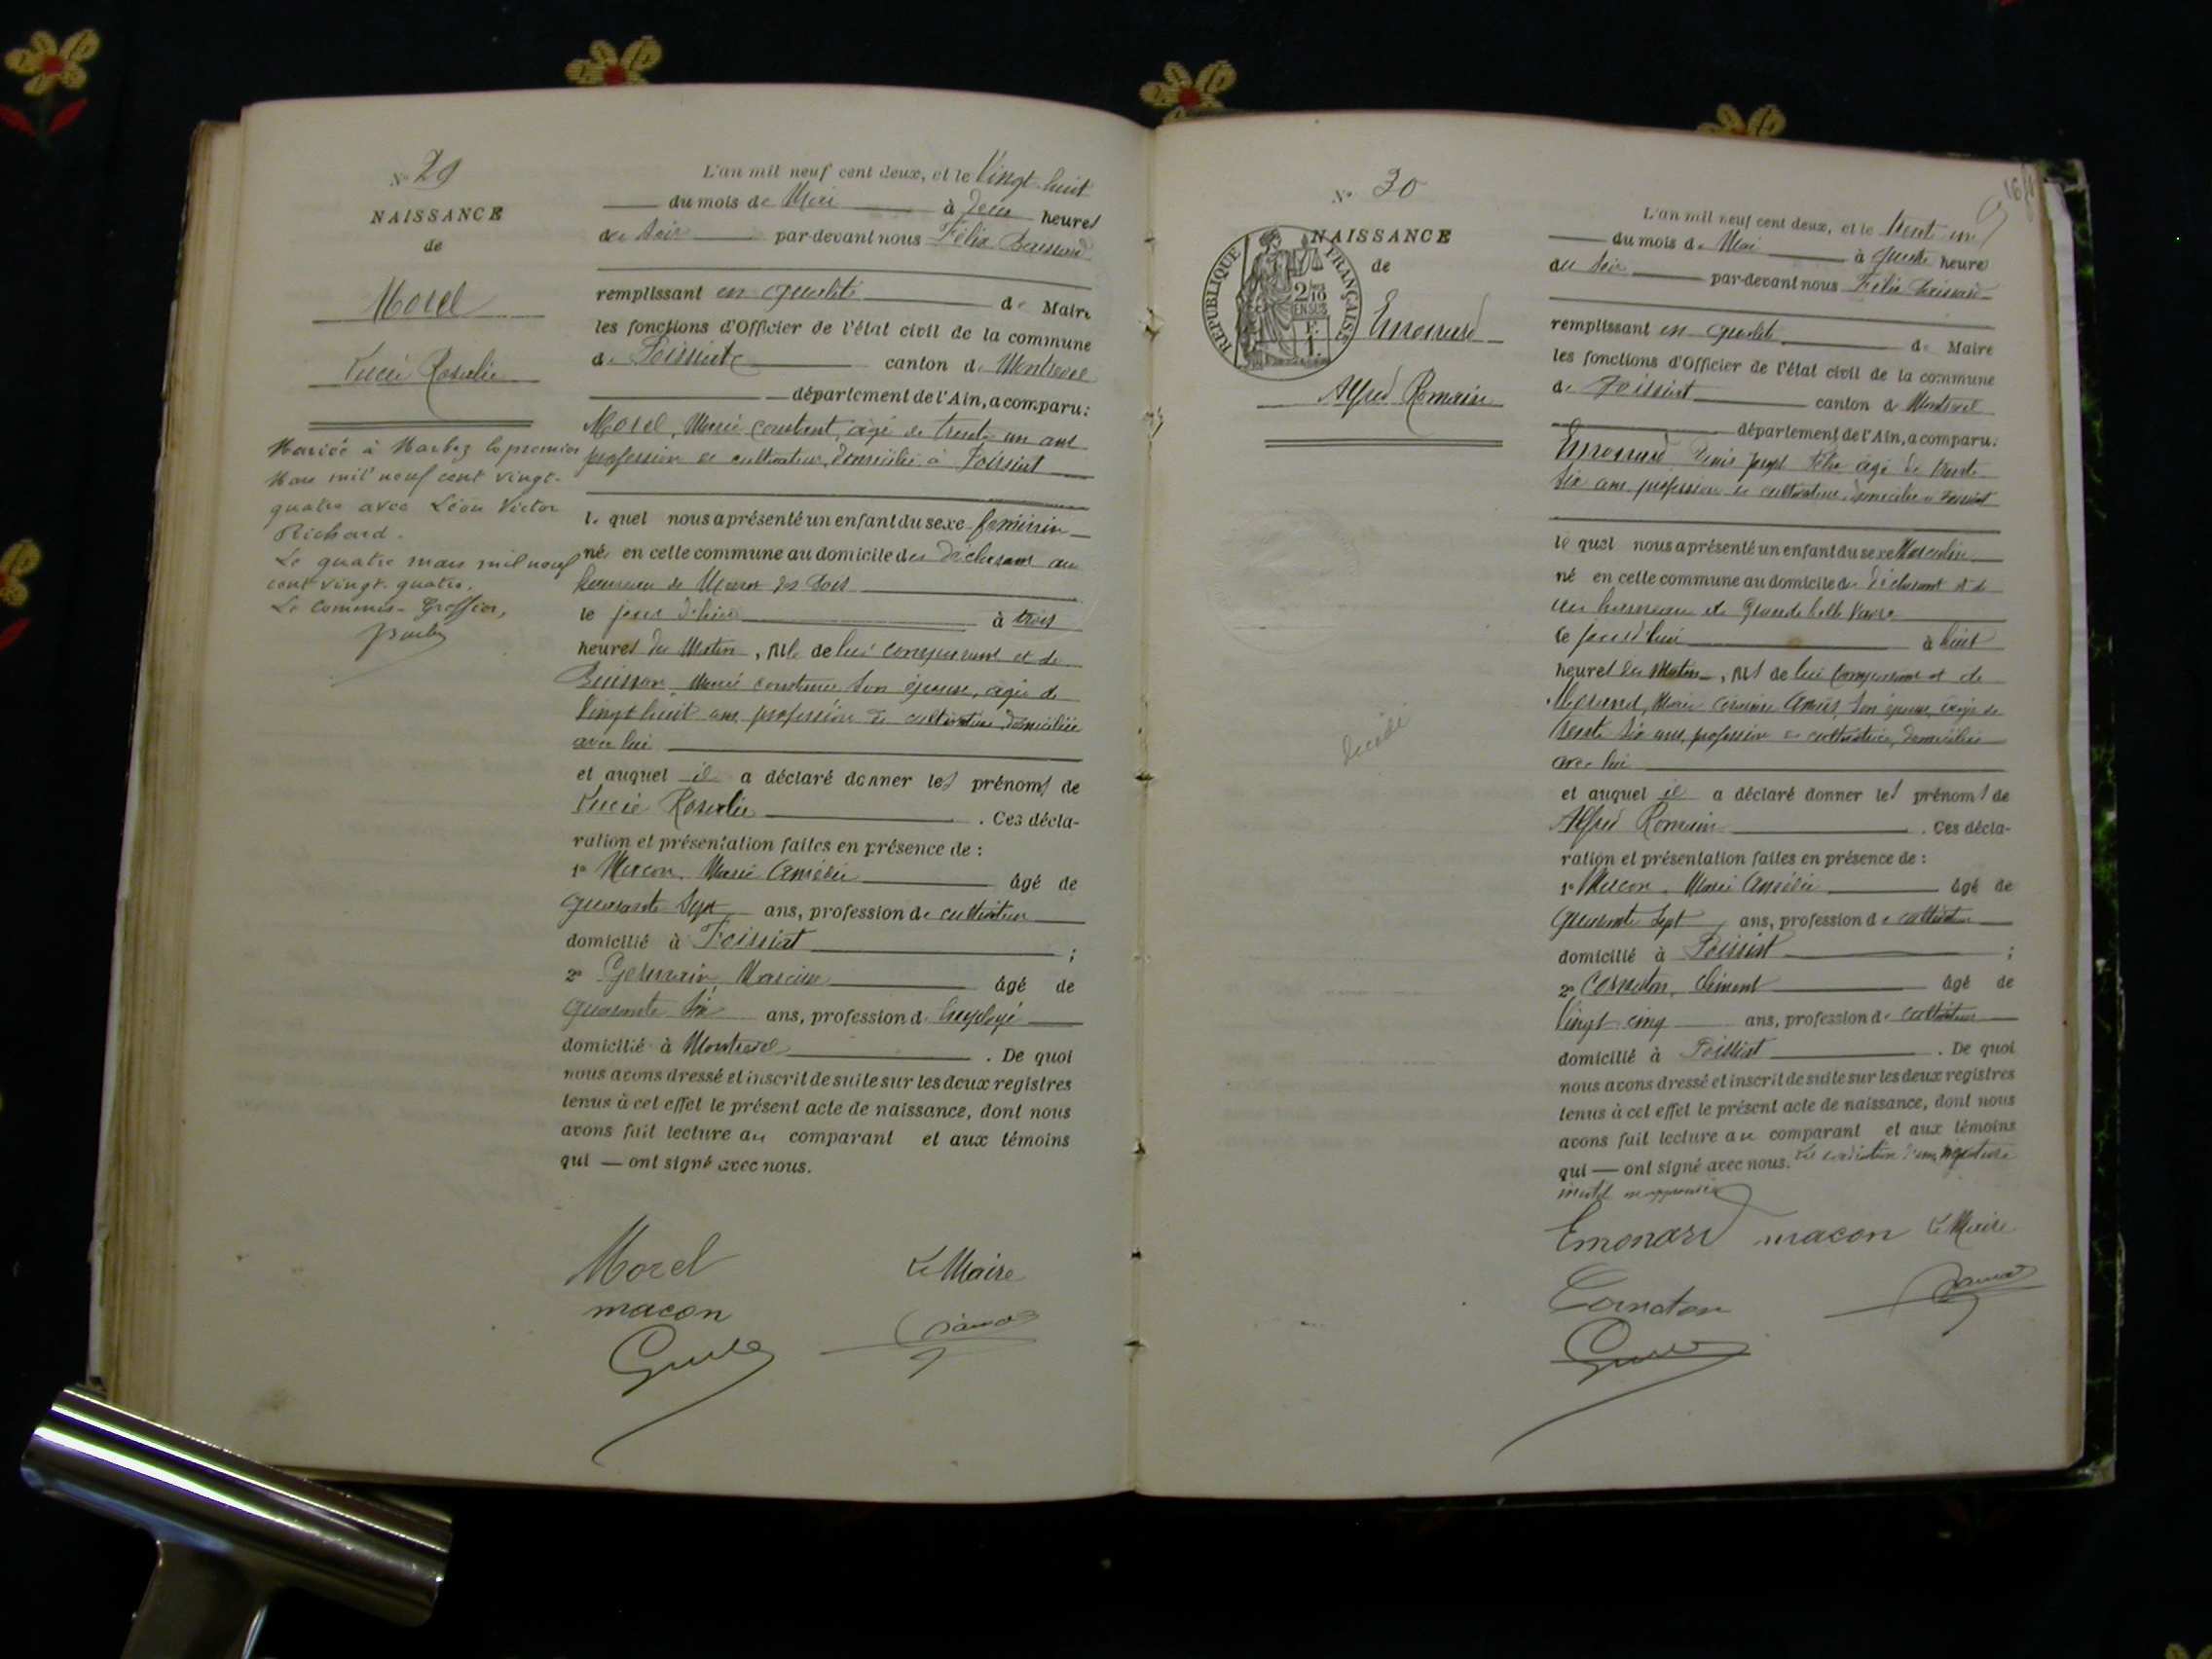 N° 29
NAISSANCE
de
Morel
Lucie Rosalie
Mariée à Marboz le premier
Mars mil neuf cent vingt-
quatre avec Léon Victor
Richard.
Le quatre mars mil neuf
cent vingt-quatre.
Le Commis-Greffier,
L'an mil neuf cent deux, et le Vingt huit
du mois de Mai à deux heures
du soir par-devant nous Félix
remplissant en qualité de Maire
les fonctions d'Officier de l'état civil de la commune
de Foissiat canton de Montrevel
département de l'Ain, a comparu:
Morel, Marie constant, âgé de trente un ans
profession de cultivateur, domicilié à Foissiat
le quel nous a présenté un enfant du sexe féminin
née en cette commune au domicile du déclarant au
hameau de
le jour d'hui à trois
heures du Matin, née de lui comparant et de
Buisson, Marie constance son épouse, âgée de
Vingt huit ans profession de cultivatrice, domiciliée
avec lui
et auquel il a déclaré donner les prénoms de
Lucie Rosalie . Ces décla-
ration et présentation faites en présence de :
1° Macon, Marie Amédée âgé de
quarante sept ans, profession de cultivateur
domicilié à Foissiat ;
2° Germain, âgé de
quarante six ans, profession d'employé
domicilié à Montrevel . De quoi
nous avons dressé et inscrit de suite sur les deux registres
tenus à cet effet le présent acte de naissance, dont nous
avons fait lecture au comparant et aux témoins
qui — ont signé avec nous.
Morel Le Maire
macon
N° 30
NAISSANCE
de
REPUBLIQUE FRANÇAISE
2/10
EN SUS
F.
1.
Emonard
Alfred Romain
Décédé
L'an mil neuf cent deux, et le trente un
du mois de Mai à quatre heures
du soir par-devant nous Félix
remplissant en qualité de Maire
les fonctions d'Officier de l'état civil de la commune
de Foissiat canton de Montrevel
département de l'Ain, a comparu:
Emonard Denis Joseph Félix âgé de trente
six ans profession de cultivateur domicilié à Foissiat
le quel nous a présenté un enfant du sexe Masculin
né en cette commune au domicile du déclarant sis
au hameau de
le jour d'hui à huit
heures du Matin, né de lui comparant et de
Marie son épouse, âgée de
trente six ans, profession de cultivatrice, domiciliée
avec lui
et auquel il a déclaré donner les prénoms de
Alfred Romain . Ces décla-
ration et présentation faites en présence de :
1° Macon, Marie Amédée âgé de
quarante sept ans, profession de cultivateur
domicilié à Foissiat ;
2° Cornaton, Clément âgé de
Vingt cinq ans, profession de cultivateur
domicilié à Foissiat . De quoi
nous avons dressé et inscrit de suite sur les deux registres
tenus à cet effet le présent acte de naissance, dont nous
avons fait lecture au comparant et aux témoins
qui — ont signé avec nous.
Emonard macon Le Maire
Cornaton